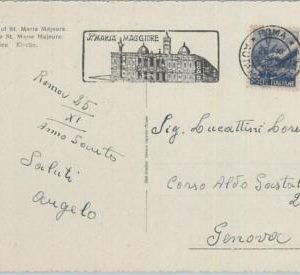 of St. Marie Majeure
St. Maria Majeure
Kirche.
S. MARIA MAGGIORE
ROMA
Roma 25
XI
Anno Santo
Saluti
Angelo
Sig. Lucattini
Corso Aldo
Genova